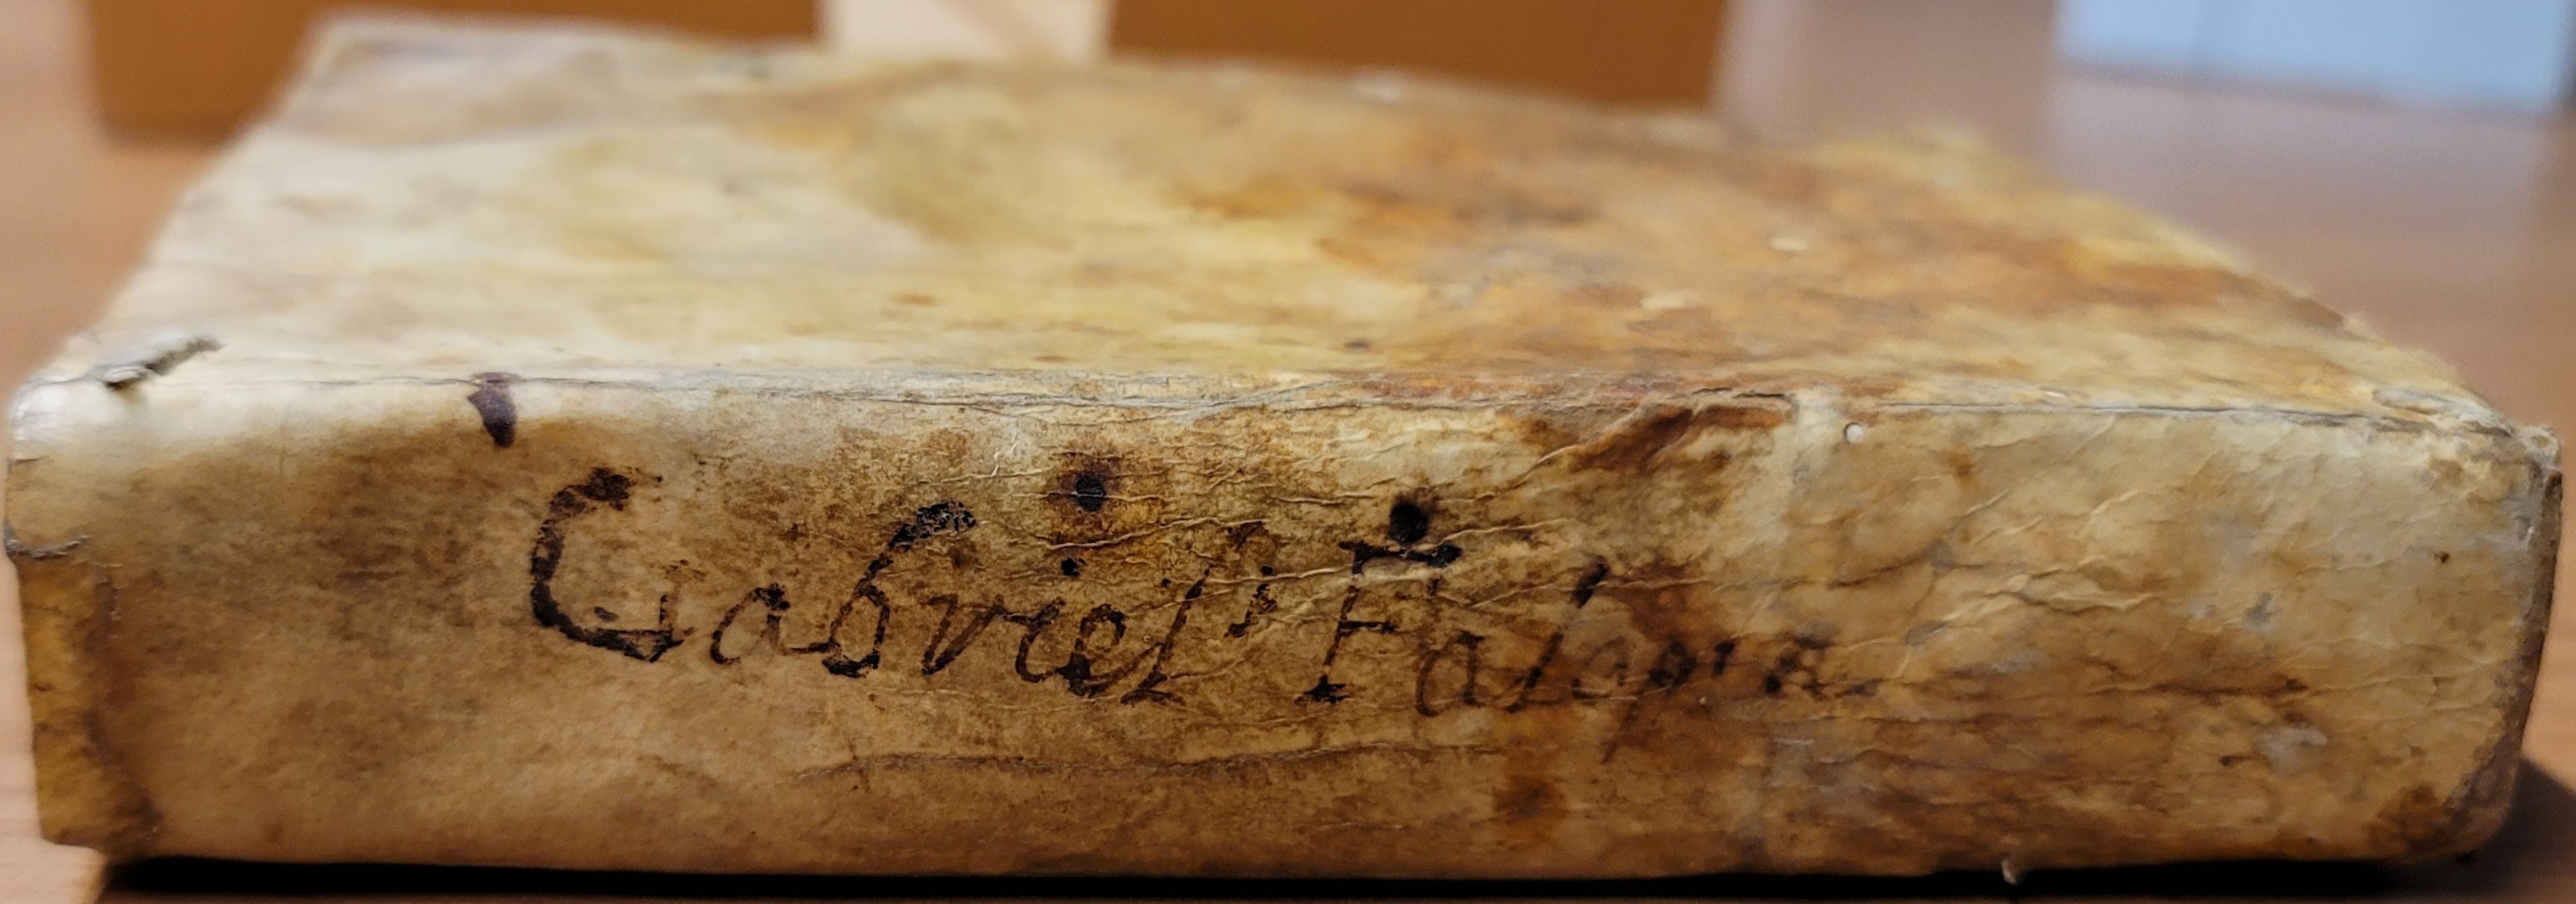 Gabriel' Falopia.